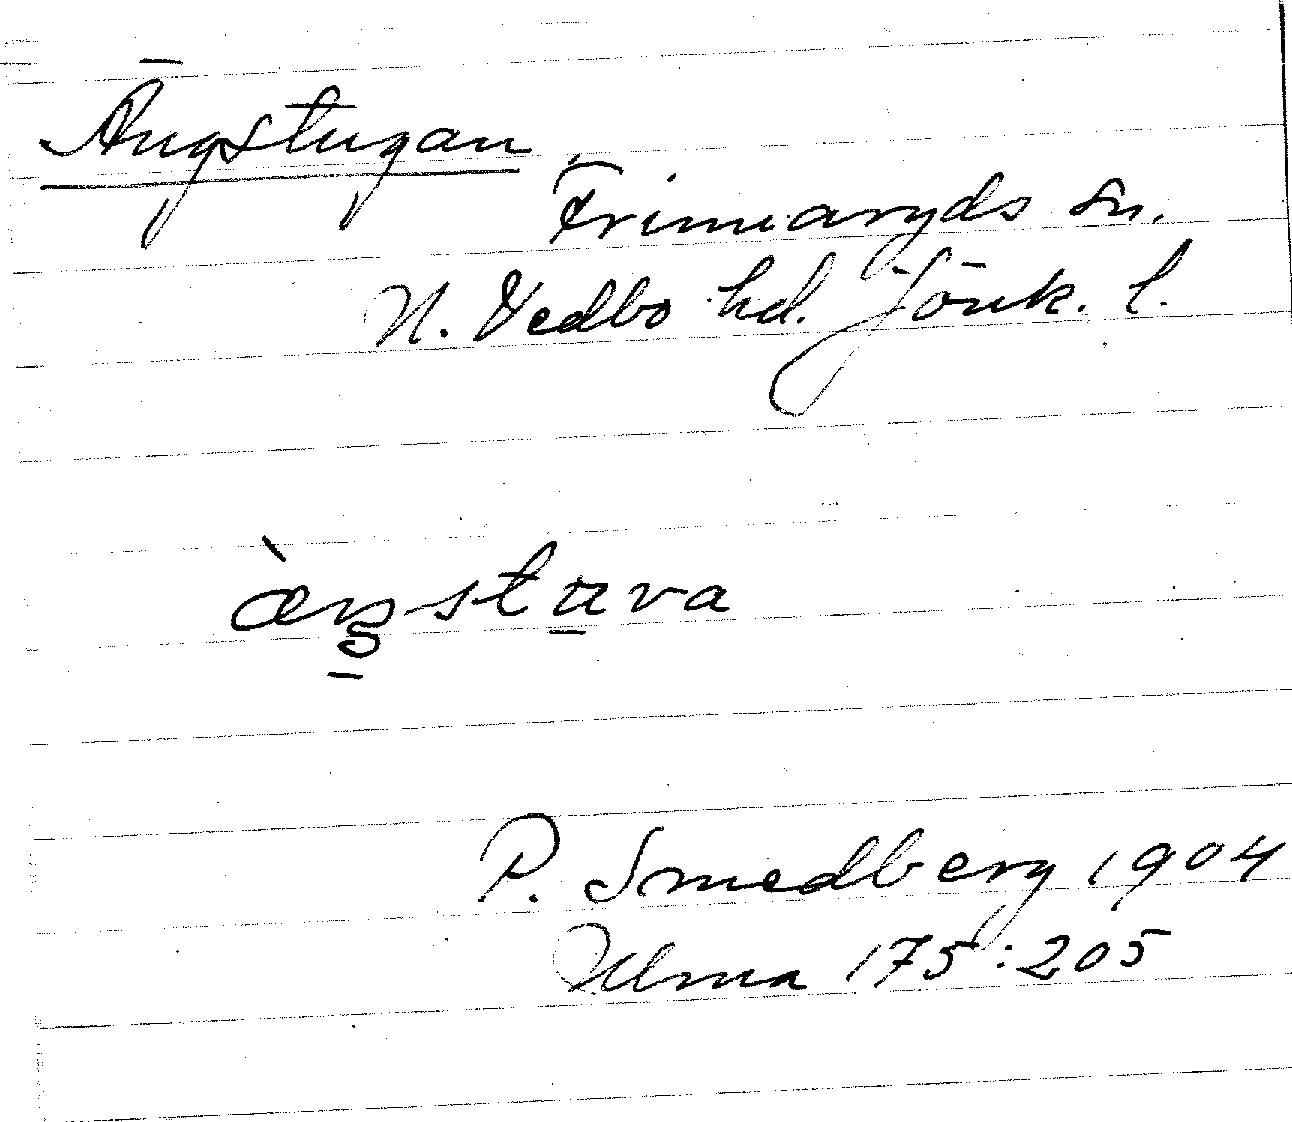 Ängstugan
Frinnaryds sn.
N. Vedbo hd. Jönk. l.
æ̀ŋstu̠va
P. Smedberg 1904
Ulma 175:205